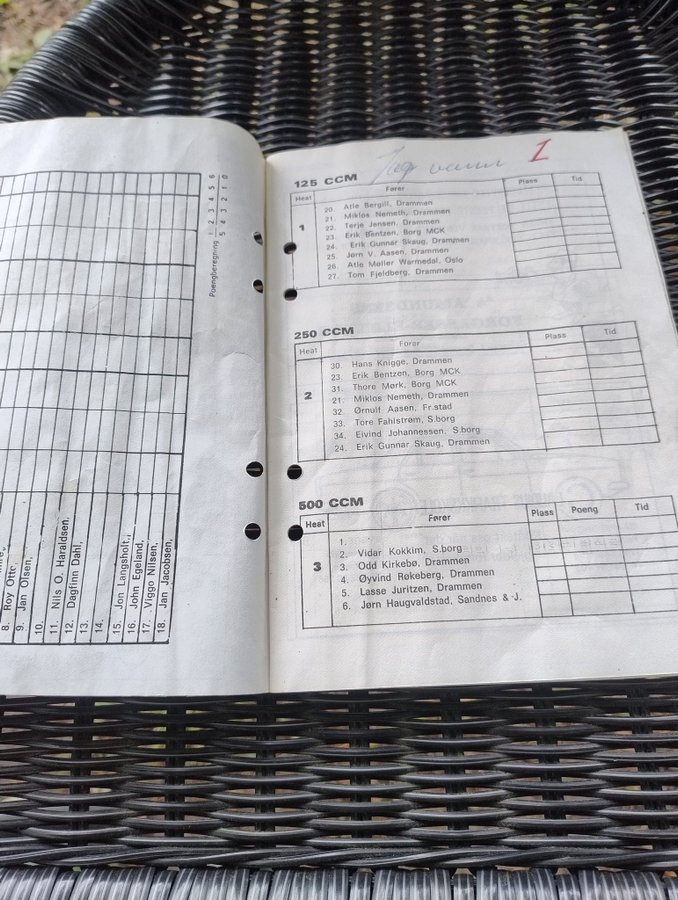 Poengberegning 1 2 3 4 5 6
5 4 3 2 1 0
8. Roy Otto,
9. Jan Olsen,
10.
11. Nils O. Haraldsen,
12. Dagfinn Dahl,
13.
14.
15. Jon Langsholt,
16. John Egeland,
17. Viggo Nilsen,
18. Jan Jacobsen,
Jag vann 1
125 CCM
Heat Fører Plass Tid
1
20. Atle Bergill, Drammen
21. Miklos Nemeth, Drammen
22. Terje Jensen, Drammen
23. Erik Bentzen, Borg MCK
24. Erik Gunnar Skaug, Drammen
25. Jørn V. Aasen, Drammen
26. Atle Møller Warmedal, Oslo
27. Tom Fjeldberg, Drammen
250 CCM
Heat Fører Plass Tid
2
30. Hans Knigge, Drammen
23. Erik Bentzen, Borg MCK
31. Thore Mørk, Borg MCK
21. Miklos Nemeth, Drammen
32. Ørnulf Aasen, Fr.stad
33. Tore Fahlstrøm, S.borg
34. Eivind Johannessen, S.borg
24. Erik Gunnar Skaug, Drammen
500 CCM
Heat Fører Plass Poeng Tid
3
1.
2. Vidar Kokkim, S.borg
3. Odd Kirkebø, Drammen
4. Øyvind Røkeberg, Drammen
5. Lasse Juritzen, Drammen
6. Jørn Haugvaldstad, Sandnes & J.